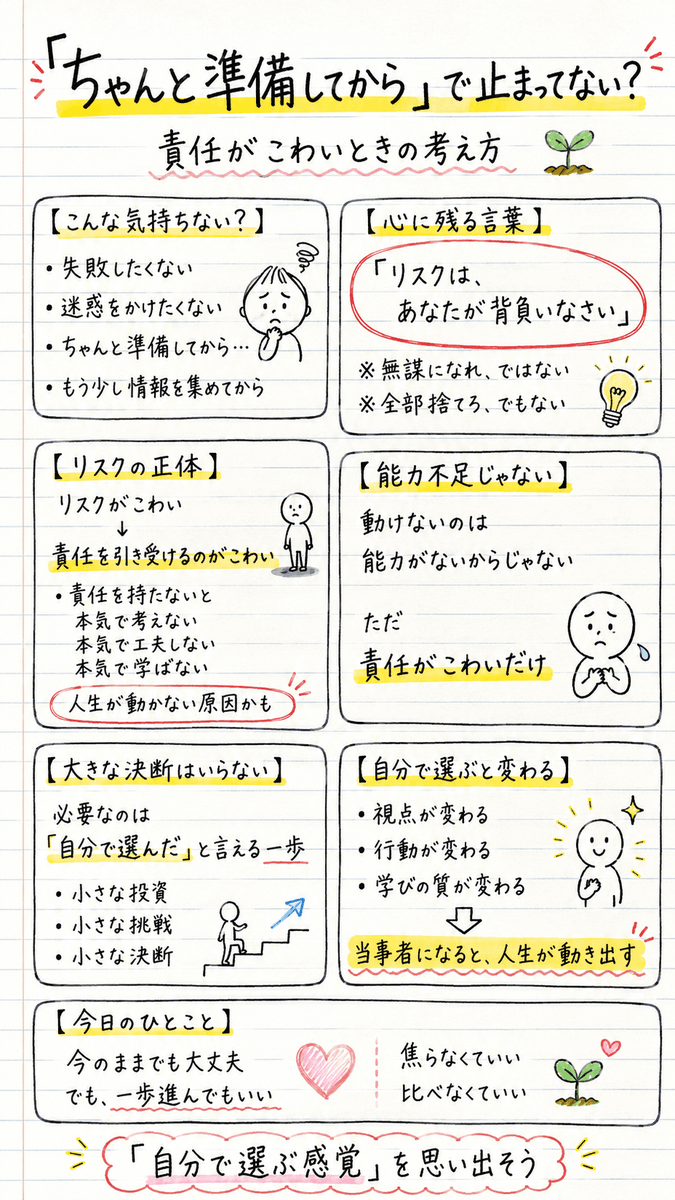 「ちゃんと準備してから」で止まってない?
責任がこわいときの考え方
【こんな気持ちない?】
・失敗したくない
・迷惑をかけたくない
・ちゃんと準備してから…
・もう少し情報を集めてから
【心に残る言葉】
「リスクは、
あなたが背負いなさい」
※無謀になれ、ではない
※全部捨てろ、でもない
【リスクの正体】
リスクがこわい
↓
責任を引き受けるのがこわい
・責任を持たないと
本気で考えない
本気で工夫しない
本気で学ばない
人生が動かない原因かも
【能力不足じゃない】
動けないのは
能力がないからじゃない
ただ
責任がこわいだけ
【大きな決断はいらない】
必要なのは
「自分で選んだ」と言える一歩
・小さな投資
・小さな挑戦
・小さな決断
【自分で選ぶと変わる】
・視点が変わる
・行動が変わる
・学びの質が変わる
当事者になると、人生が動き出す
【今日のひとこと】
今のままでも大丈夫
でも、一歩進んでもいい
焦らなくていい
比べなくていい
「自分で選ぶ感覚」を思い出そう